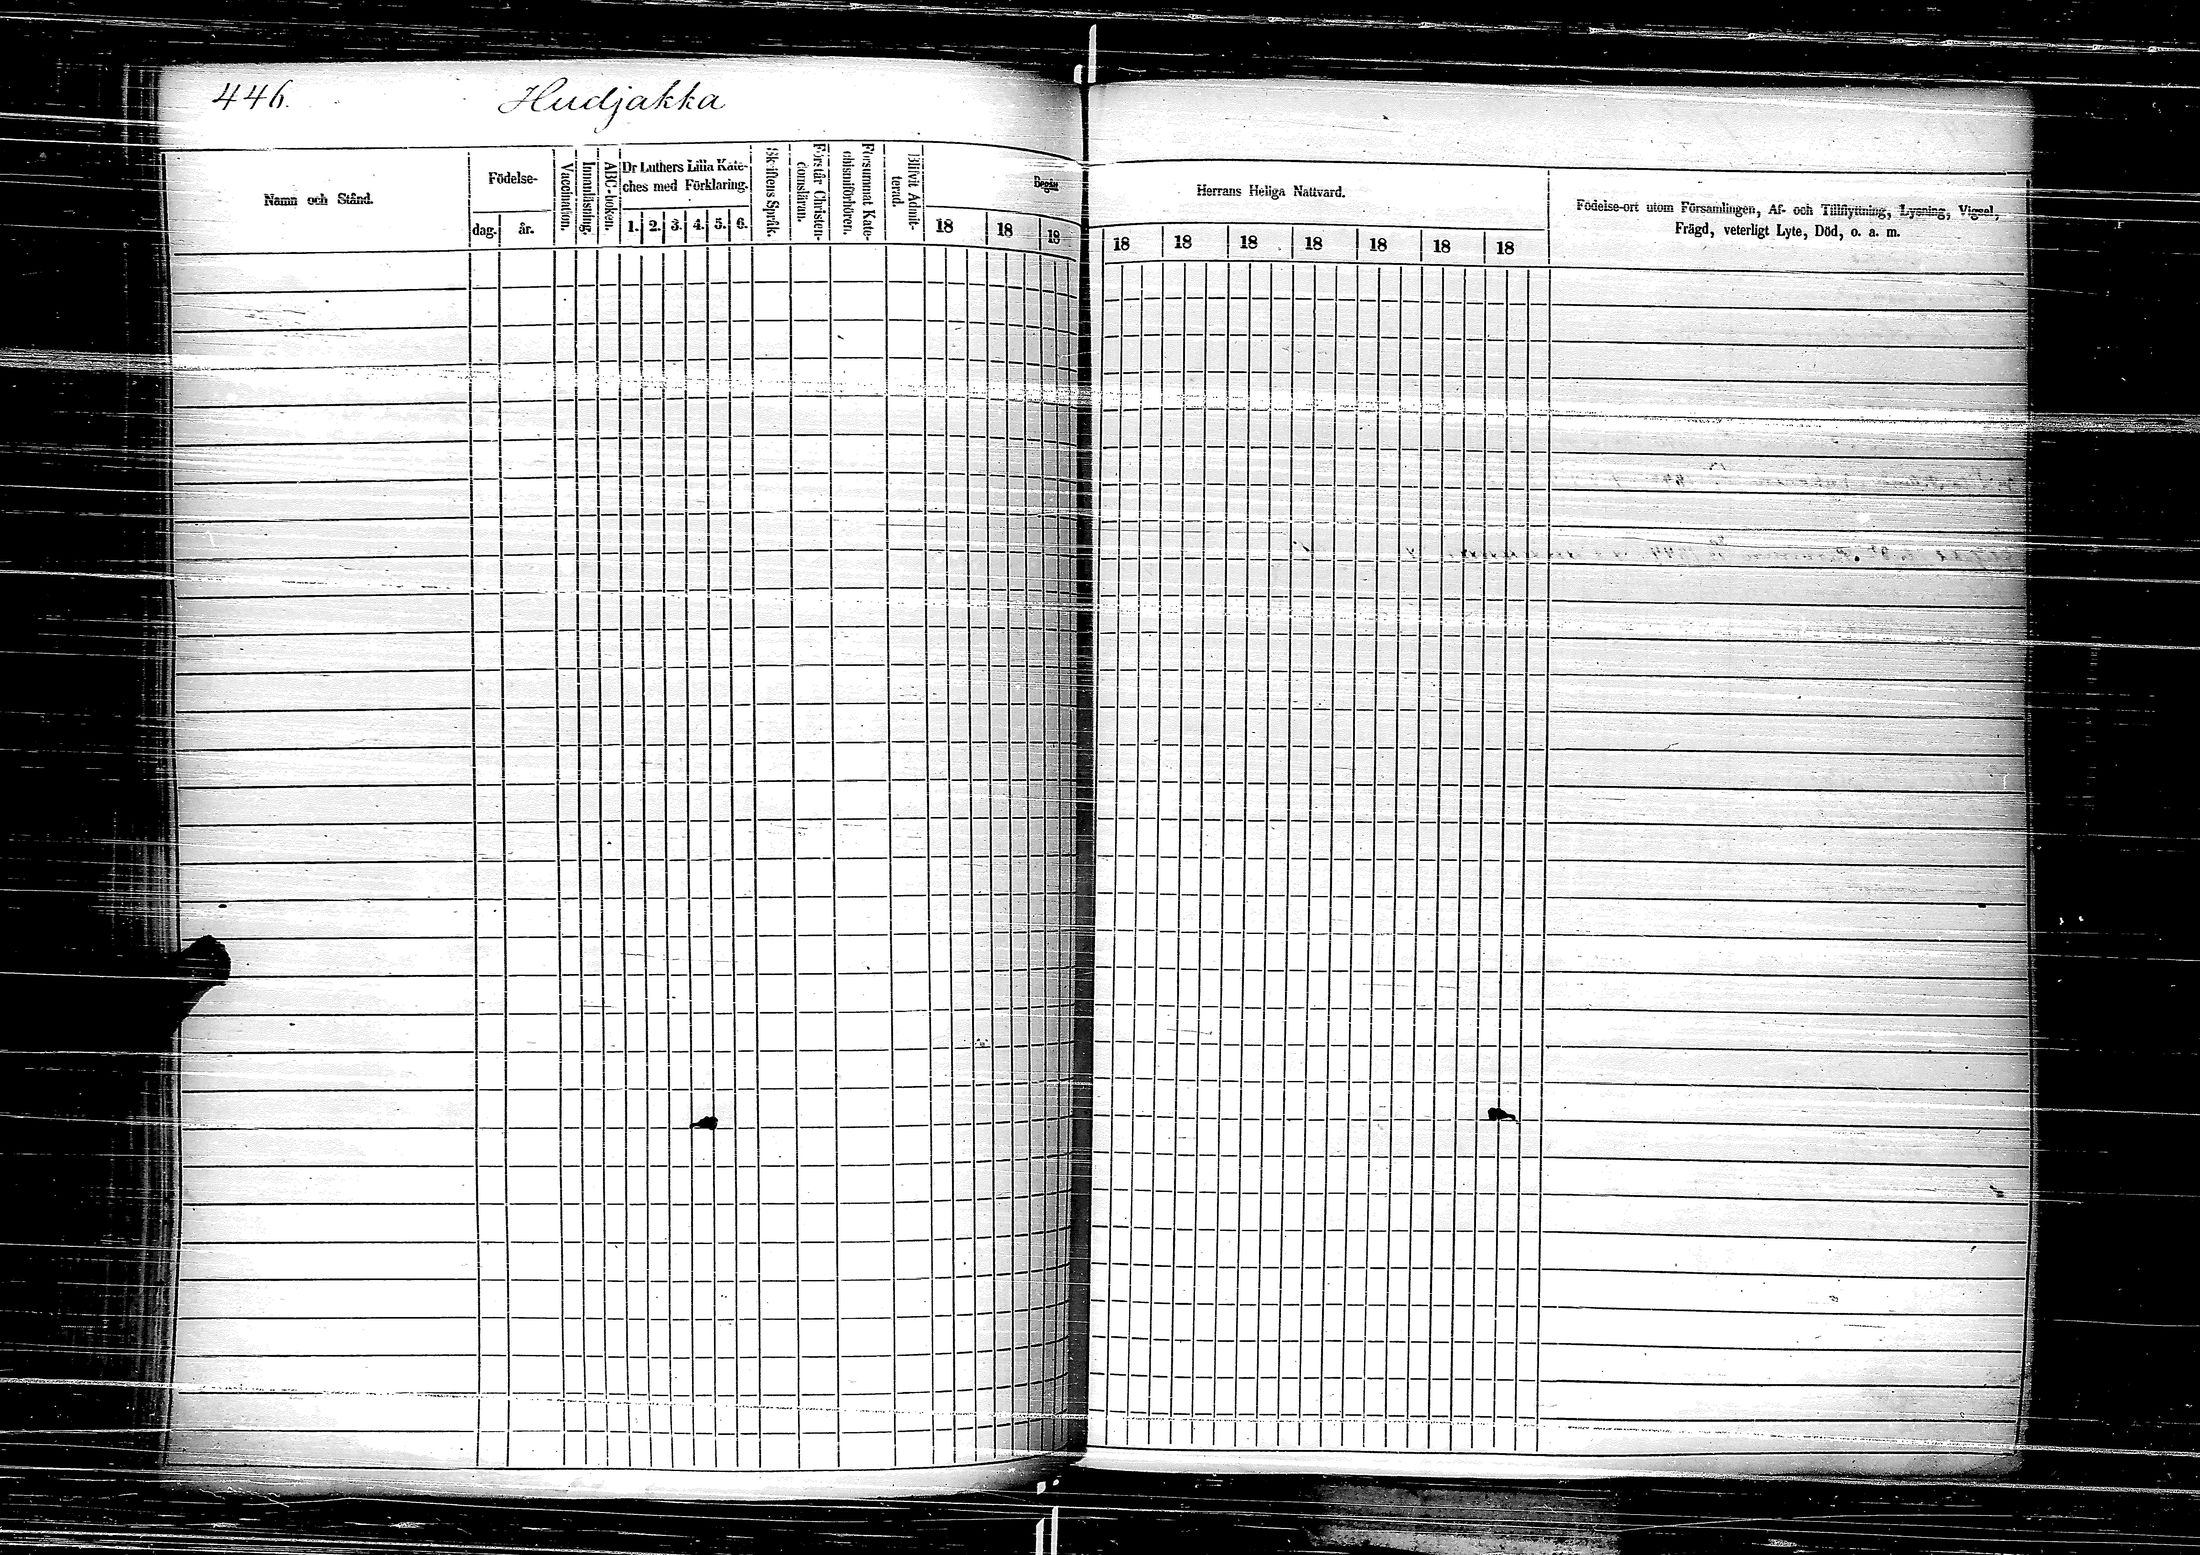 446.
Hudjakka
Namn och Stånd.
Födelse-
dag.
år.
Vaccination.
Innanläsning.
ABC-boken.
Dr Luthers Lilla Kate-
ches med Förklaring.
1. 2. 3. 4. 5. 6.
Skriftens Språk.
Förstår Christen-
domsläran.
Försummat Kate-
chismiförhören.
Blifvit Admit-
terad.
Begått
18 18 18
Herrans Heliga Nattvard.
18 18 18 18 18 18 18
Födelse-ort utom Församlingen, Af- och Tillflyttning, Lysning, Vigsel,
Frägd, veterligt Lyte, Död, o. a. m.